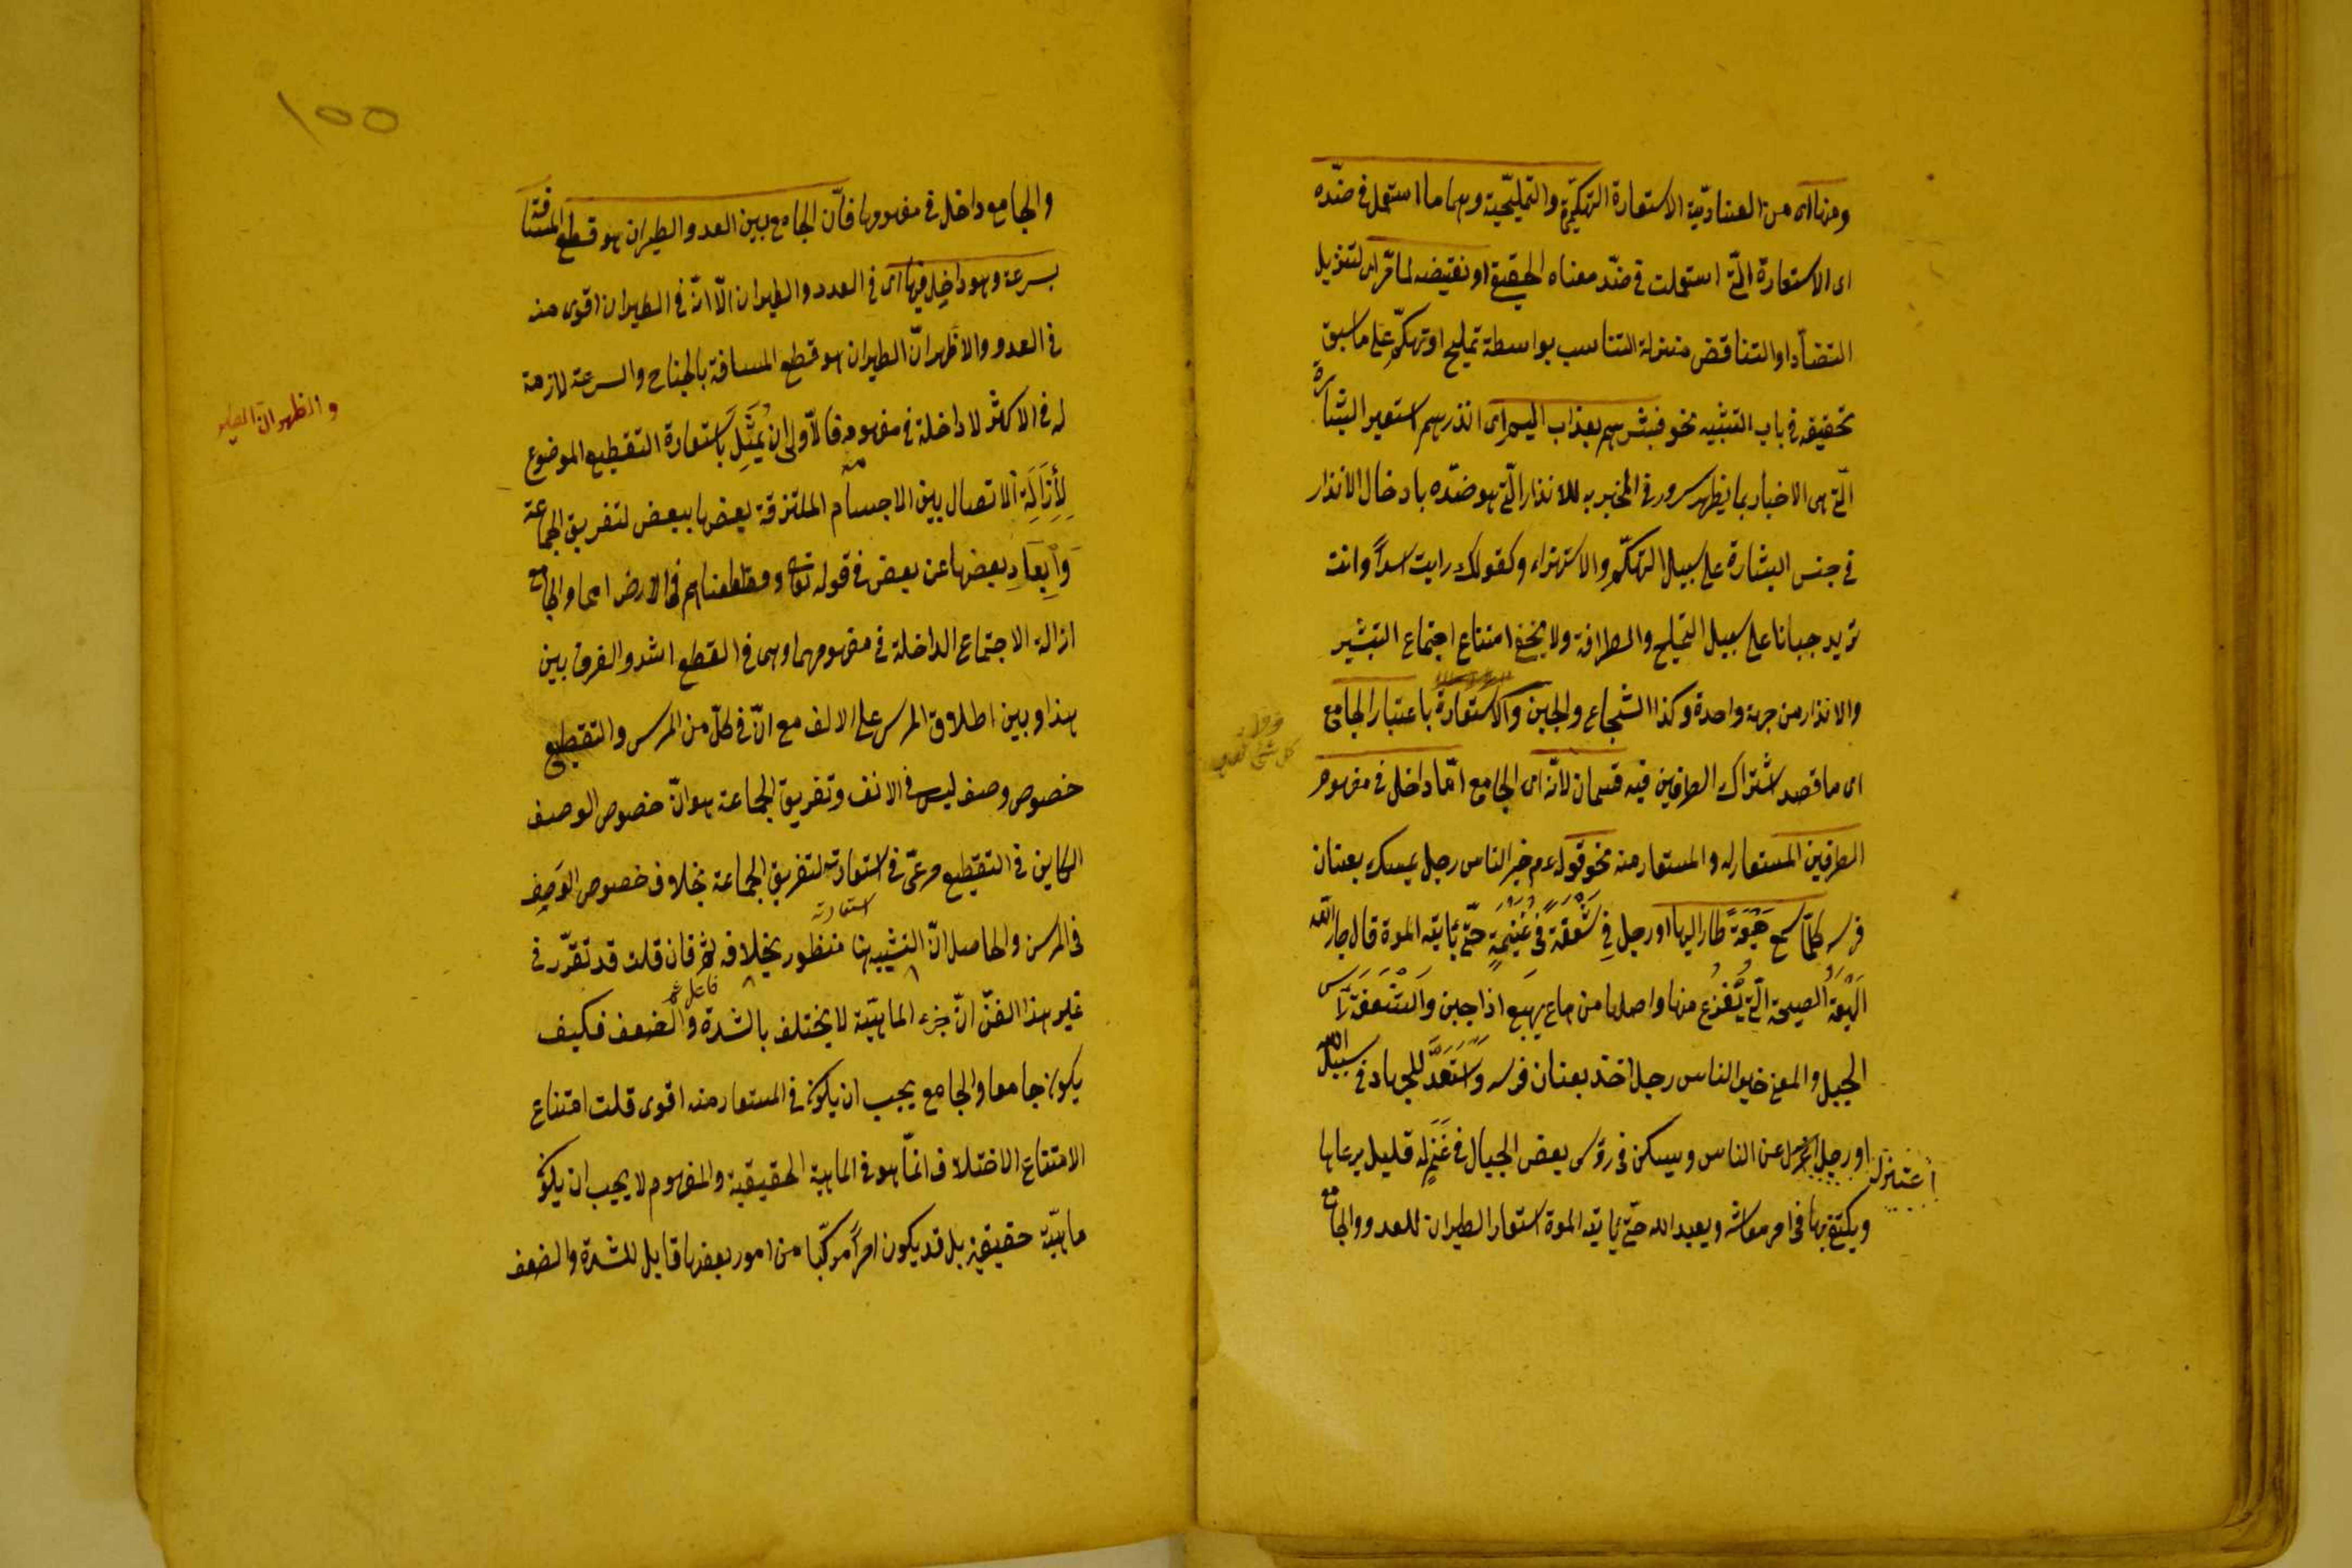 ومنها اى من العنادية الاستعارة التهكّميّة والتمليحيّة وهما ما استعمل فى ضدّه
اى الاستعارة الّتى استعملت فى ضدّ معناه الحقيقى او نقيضه لما مرّ اى لتنزيل
التضادّ او التناقض منزلة التناسب بواسطة تمليح او تهكّم على ما سبق
تحقيقه فى باب التشبيه نحو فبشرهم بعذاب اليم اى انذرهم استعير البشارة
الّتى هى الاخبار بما يظهر سرور فى المخبر به للانذار الّتى هو ضدّه بادخال الانذار
فى جنس البشارة على سبيل التهكّم والاستهزاء وكقولك رايت اسداً وانت
تريد جبانا على سبيل التمليح والظرافة ولا يخفى امتناع اجتماع التبشير
والانذار من جهة واحدة وكذا الشجاع والجبن والاستعارة باعتبار الجامع
اى ما قصد اشتراك الطرفين فيه قسمان لانّه اى الجامع امّا داخل فى مفهوم
الطرفين المستعار له والمستعار منه نحو قوله عم خير الناس رجل يمسك بعنان
فرسه كلّما سمع هَيْعَةً طار اليها او رجل فِى شَعْفَةٍ فى غُنَيْمَةٍ حتّى ياتيه الموة قال جار الله
الهَيْعَة الصيحة الّتى يُفْزَع منها واصلها من هاع يهيع اذا جبن والشَعَفَة رأس
الجبل والمعنى خير الناس رجل اخذ بعنان فرسه واسْتَعَدَّ للجهاد فى سبيل الله
او رجل اعتزل عن الناس ويسكن فى رؤس بعض الجبال فى غَنَمٍ له قليل يرعاها
ويكتفى بها فى امر معاشه ويعبد الله حتّى ياتيه الموة استعار الطيران للعدو والجامع
اعتزل
١٥٥
والجامع داخل فى مفهومها فانّ الجامع بين العدو والطيران هو قطع المسافة
بسرعة وهو داخل فيها اى فى العدو والطيران الّا انّه فى الطيران اقوى منه
فى العدو والاظهر انّ الطيران هو قطع المسافة بالجناح والسرعة لازمة
له فى الاكثر لا داخلة فى مفهومه فالاَولى ان يُمَثَّلِ باستعارة التقطيع الموضوع
لِاِزَالَةِ الاتصال بين الاجسام الملتزقة بعضها ببعض لتفريق الجماعة
وَاِبعَادِ بعضها عن بعض فى قوله تعالى وقطعناهم فى الارض امما والجامع
ازالة الاجتماع الداخلة فى مفهومهما وهى فى القطع اشد والفرق بين
هذا وبين اطلاق المرسن على الانف مع انّ فى كلّ من المرسن والتقطيع
خصوص وصف ليس فى الانف وتفريق الجماعة هو انّ خصوص الوصف
الكاين فى التقطيع مرعىّ فى استعارته لتفريق الجماعة بخلاف خصوص الوصف
استعارته
فى المرسن والحاصل انّ التشبيه هنا منظور بخلافه ثم فان قلت قد تقرّر فى
غير هذا الفنّ انّ جزء الماهيّة لا يختلف بالشدة والضعف فكيف
يكون جامعا والجامع يجب ان يكون فى المستعار منه اقوى قلت امتناع
الامتناع الاختلاف انمّا هو فى الماهية الحقيقية والمفهوم لا يجب ان يكون
ماهيّة حقيقية بل قد يكون امراً مركّبا من امور بعضها قابل للشدة والضعف